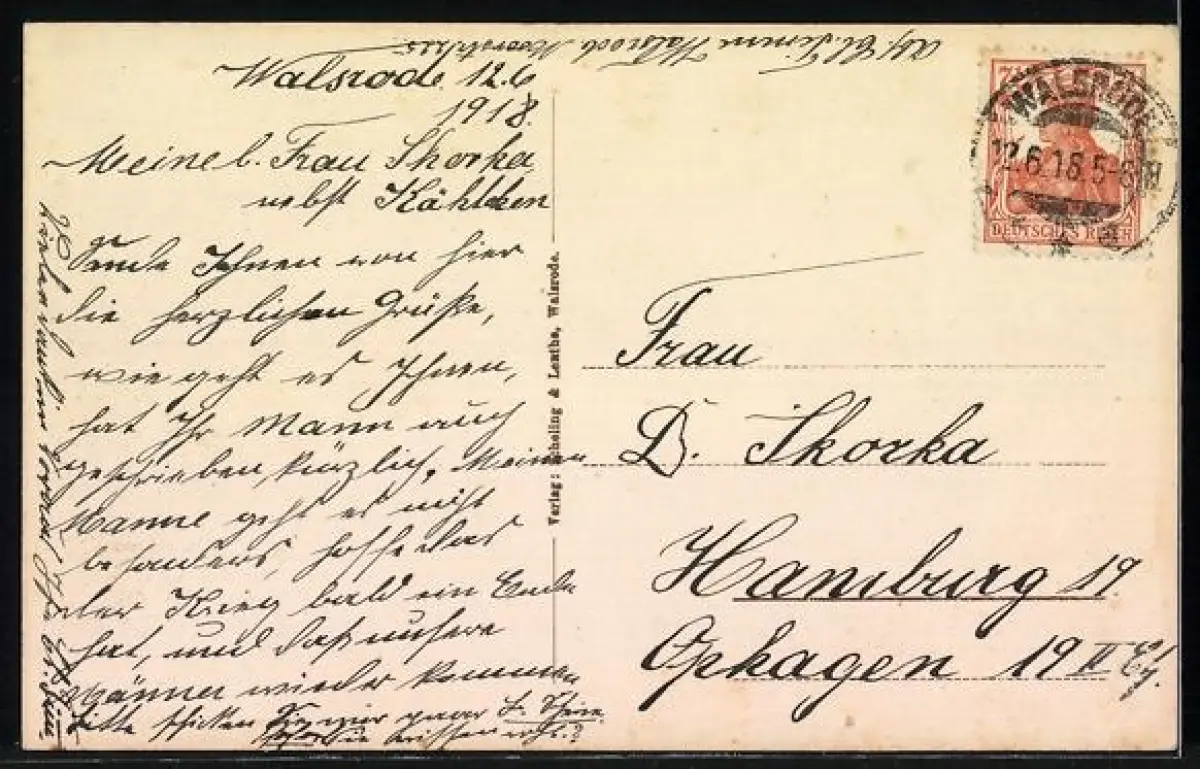 Walsrode 12.6
1918.
Meine l. Frau Skorka
nebst Käthchen
Sende Ihnen von hier
die herzlichen Grüße,
wie geht es Ihnen,
hat Ihr Mann auch
geschrieben kürzlich. Meinen
Manne geht es nicht
besonders, hoffe das
der Krieg bald ein Ende
hat, und daß unsere
Männer wieder kommen
Bitte schicken Sie mir
Walsrode
Verlag: &
Walsrode.
WALSRODE
12.6.18.5-6N
DEUTSCHES REICH
Frau
D. Skorka
Hamburg 19.
Opkagen 19 II